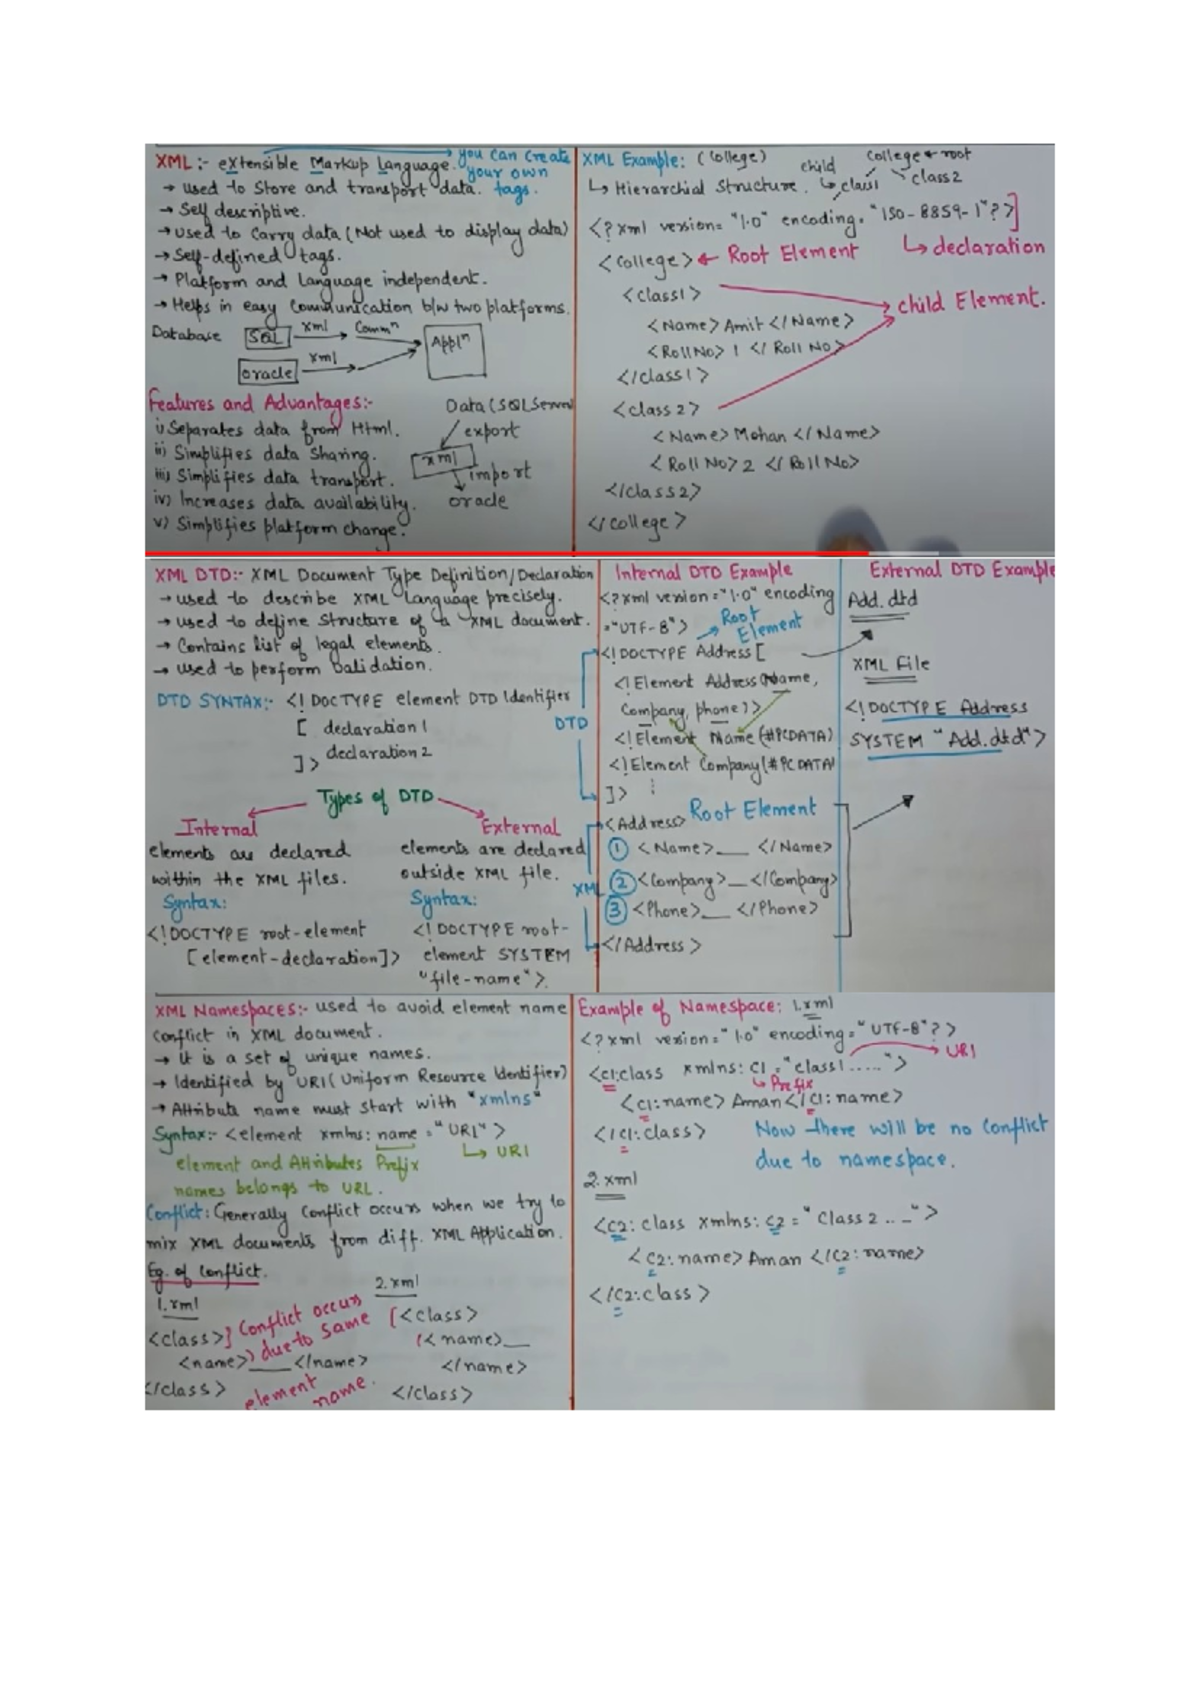 XML :- eXtensible Markup Language. you can create your own tags.
→ used to Store and transport data.
→ Self descriptive.
→ used to Carry data (Not used to display data)
→ Self-defined tags.
→ Platform and Language independent.
→ Helps in easy Communication b/w two platforms.
Database SQL xml Commⁿ Applⁿ
oracle xml
Features and Advantages:-
i) Separates data from Html.
ii) Simplifies data Sharing.
iii) Simplifies data transport.
iv) Increases data availability.
v) Simplifies platform change.
Data (SQL Server)
export
xml
import
oracle
XML Example: (College)
College ← root
child
class1 class2
↳ Hierarchial Structure.
<? xml version= "1.0" encoding= "ISO-8859-1"?>
↳ declaration
<College> ← Root Element
<class1>
child Element.
<Name> Amit </Name>
<Roll No> 1 </Roll No>
</class1>
<class 2>
<Name> Mohan </Name>
<Roll No> 2 </Roll No>
</class2>
</college>
XML DTD:- XML Document Type Definition/Declaration
→ used to describe XML Language precisely.
→ used to define Structure of a XML document.
→ Contains list of legal elements.
→ used to perform Validation.
DTD SYNTAX:- <! DOCTYPE element DTD Identifier
[ declaration 1
declaration 2
]>
Types of DTD
Internal
elements are declared
within the XML files.
Syntax:
<! DOCTYPE root-element
[element-declaration]>
External
elements are declared
outside XML file.
Syntax:
<! DOCTYPE root-
element SYSTEM
"file-name">.
Internal DTD Example
<? xml version="1.0" encoding
="UTF-8">
Root Element
DTD
<! DOCTYPE Address [
<! Element Address (Name,
Company, phone)>
<! Element Name (#PCDATA)
<! Element Company (#PCDATA)
]>
Root Element
XML
<Address>
① <Name>__ </Name>
② <Company>_</Company>
③ <Phone>__ </Phone>
</Address>
External DTD Example
Add.dtd
XML File
<! DOCTYPE Address
SYSTEM "Add.dtd">
XML Namespaces:- used to avoid element name
conflict in XML document.
→ It is a set of unique names.
→ Identified by URI (Uniform Resource Identifier)
→ Attribute name must start with "xmlns"
Syntax:- <element xmlns: name = "URI">
↳ URI
element and Attributes Prefix
names belongs to URL.
Conflict: Generally Conflict occurs when we try to
mix XML documents from diff. XML Application.
Eg. of conflict.
1.xml
<class>
<name>__</name>
</class>
Conflict occurs
due to same
element
name.
2.xml
<class>
<name>__
</name>
</class>
Example of Namespace: 1.xml
<? xml version= "1.0" encoding="UTF-8"?>
URI
<c1:class xmlns: c1 = "class1 .....">
↳ Prefix
<c1:name> Aman </c1: name>
</c1:class>
Now there will be no conflict
due to namespace.
2.xml
<c2: class xmlns: c2 = "Class 2 .. _">
<c2:name> Aman </c2: name>
</c2:class>